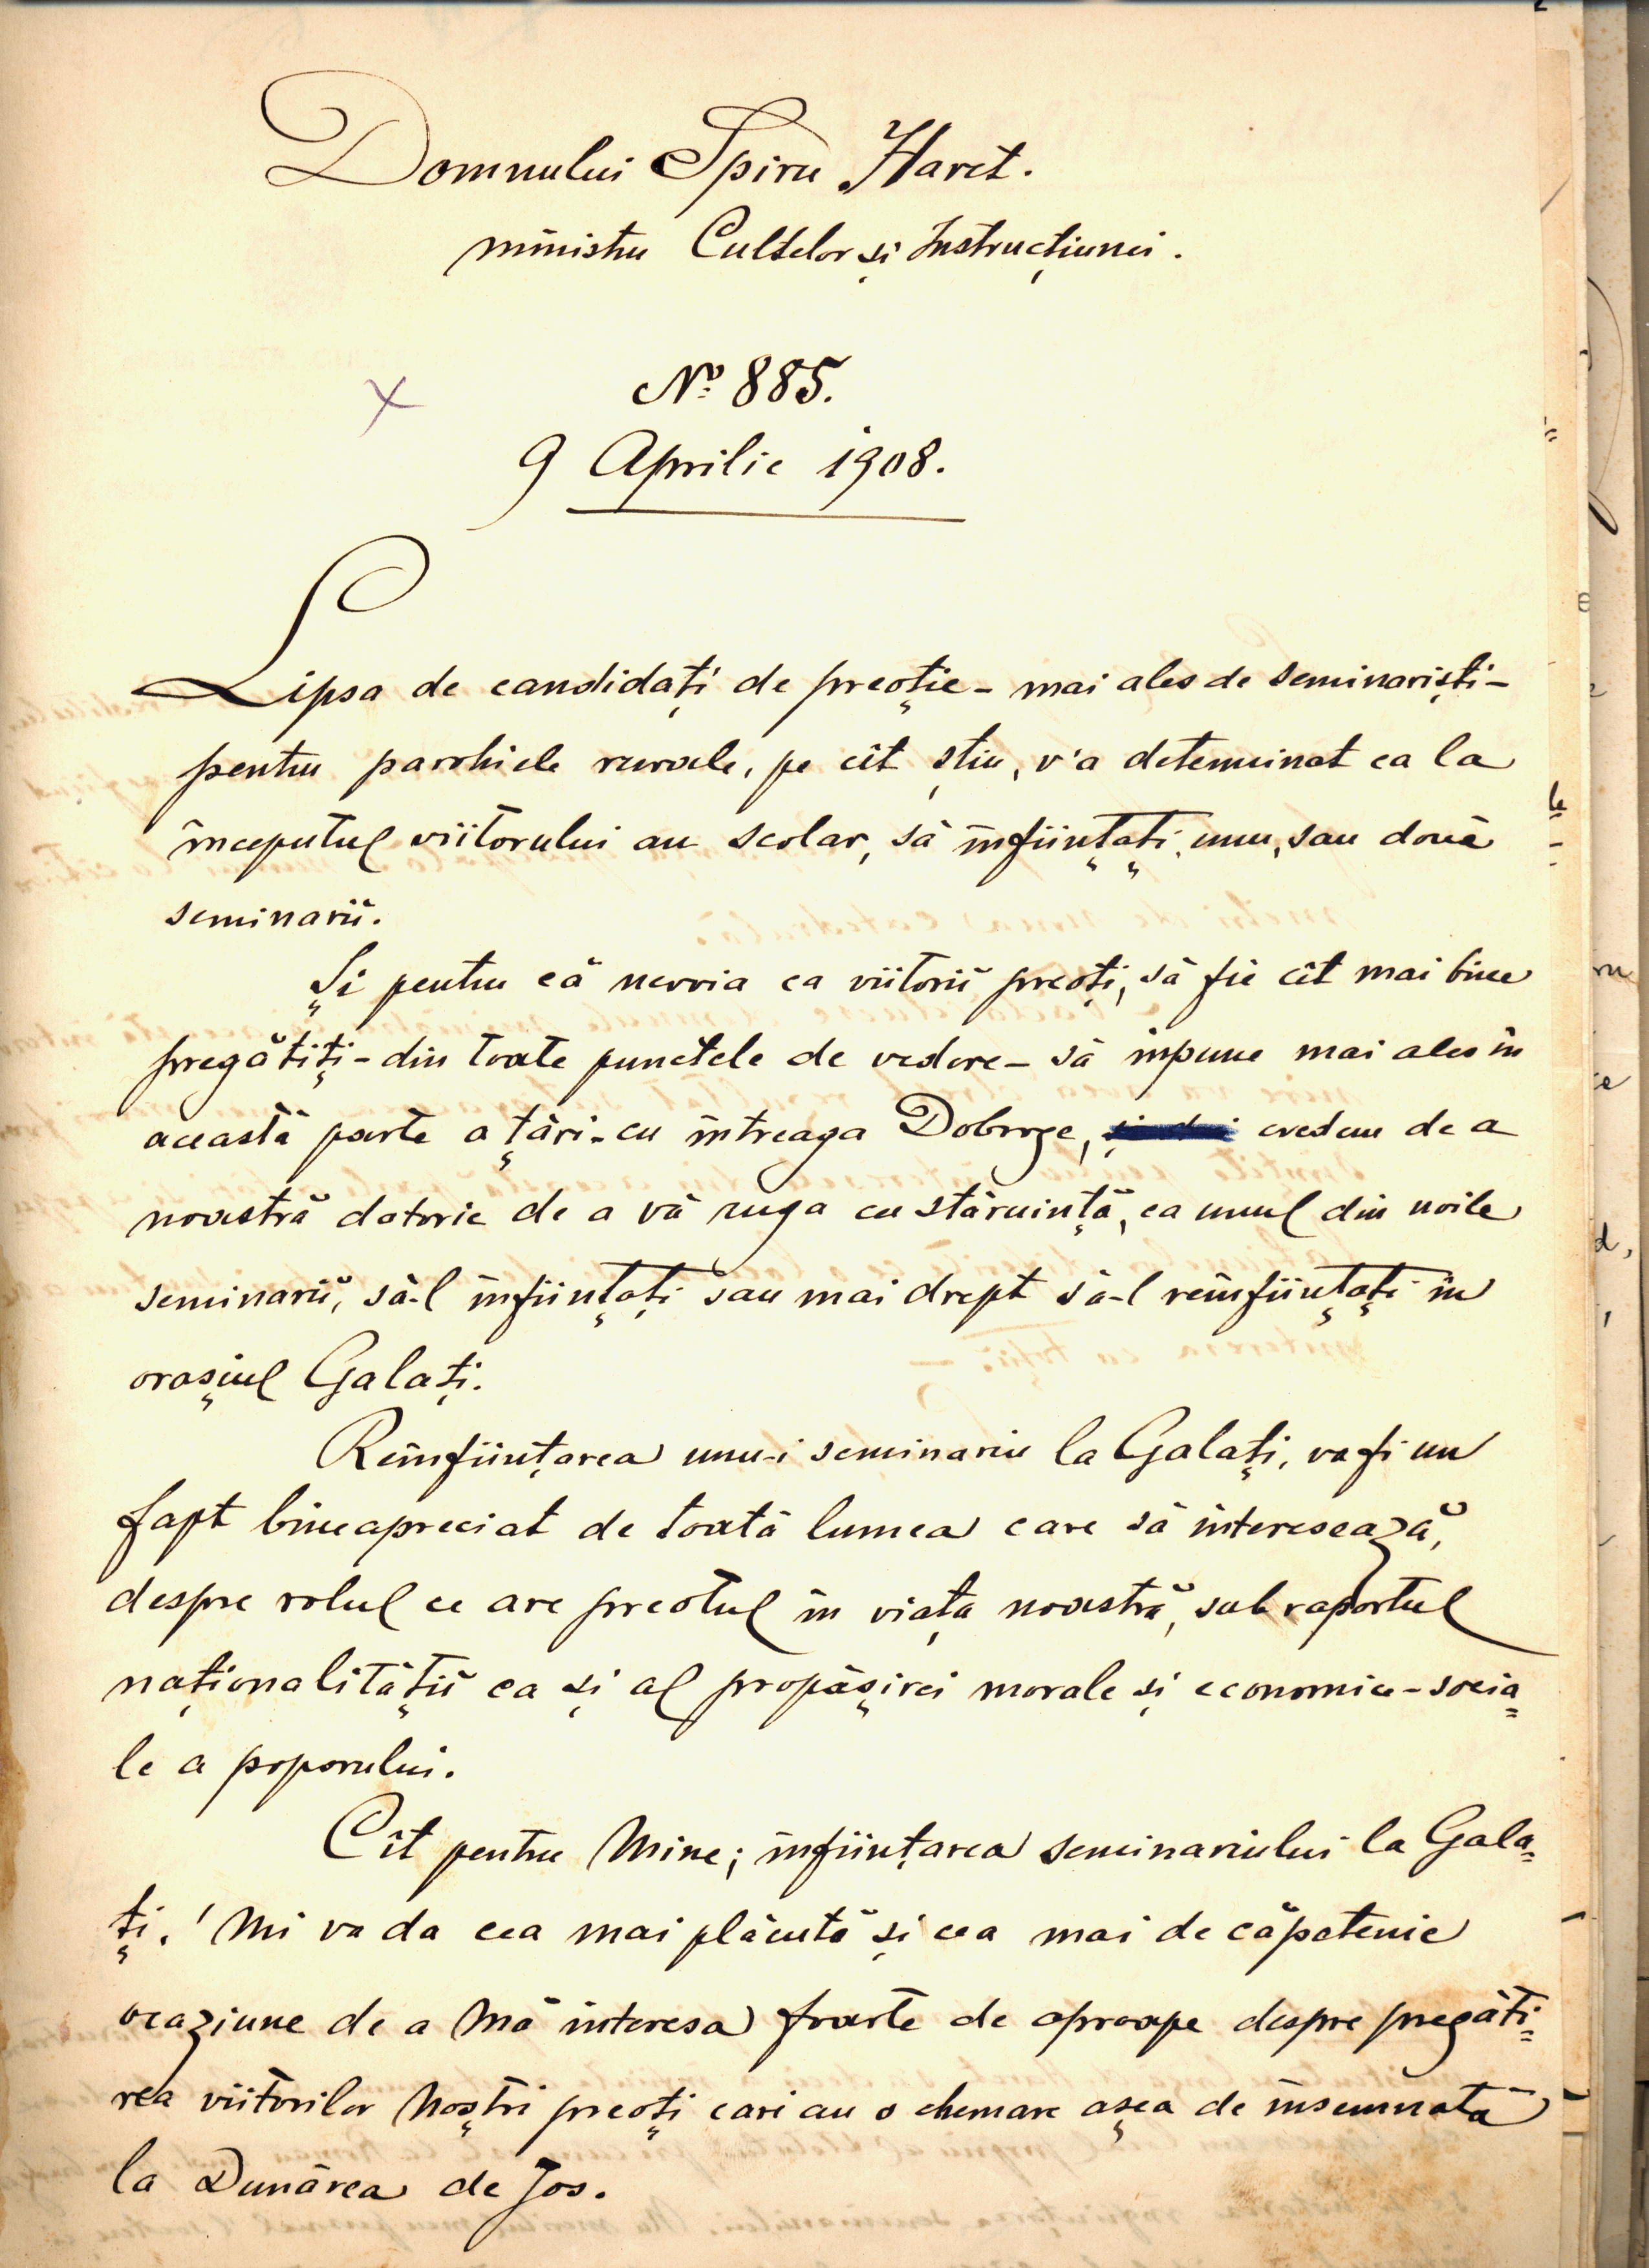 Domnului Spiru Haret.
ministru Cultelor și Instrucțiunei.
No 885.
9 Aprilie 1908.
Lipsa de candidați de preoție - mai ales de seminariști -
pentru parohiele rurale, pe cît știu, v'a determinat ca la
începutul viitorului an scolar, să înființați, unu, sau două
seminarii.
Și pentru că nevoia ca viitorii preoți, să fie cît mai bine
pregătiți - din toate punctele de vedere - să impune mai ales in
această parte a țări - cu intreaga Dobroge, credem de a
noastră datorie de a vă ruga cu stăruință, ca unul din noile
seminarii, să-l înființați sau mai drept să-l reînființați în
orașiul Galați.
Reînființarea unu-i seminariu la Galați, va fi un
fapt bineapreciat de toată lumea care să interesează,
despre rolul ce are preotul în viața noastră, sub raportul
naționalității ca și al propășirei morale și economice-socia=
le a poporului.
Cît pentru Mine; înființarea seminariului la Gala=
ți, 'Mi va da cea mai plăcută și cea mai de căpetenie
ocaziune de a Mă interesa foarte de aproape despre pregăti=
rea viitorilor Noștri preoți cari au o chemare așea de însemnată
la Dunărea de Jos.